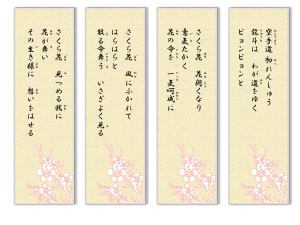 空手道 初れんしゅう
銘斗は わが道をゆく
ピョンピョンと
さくら花 花開くなり
意気たかく
花の命を 一気呵成に
さくら花 風にふかれて
はらはらと
散る命舞う いさぎよく光る
さくら花 見つめる我に
花が舞い
その生き様に 想いをはせる